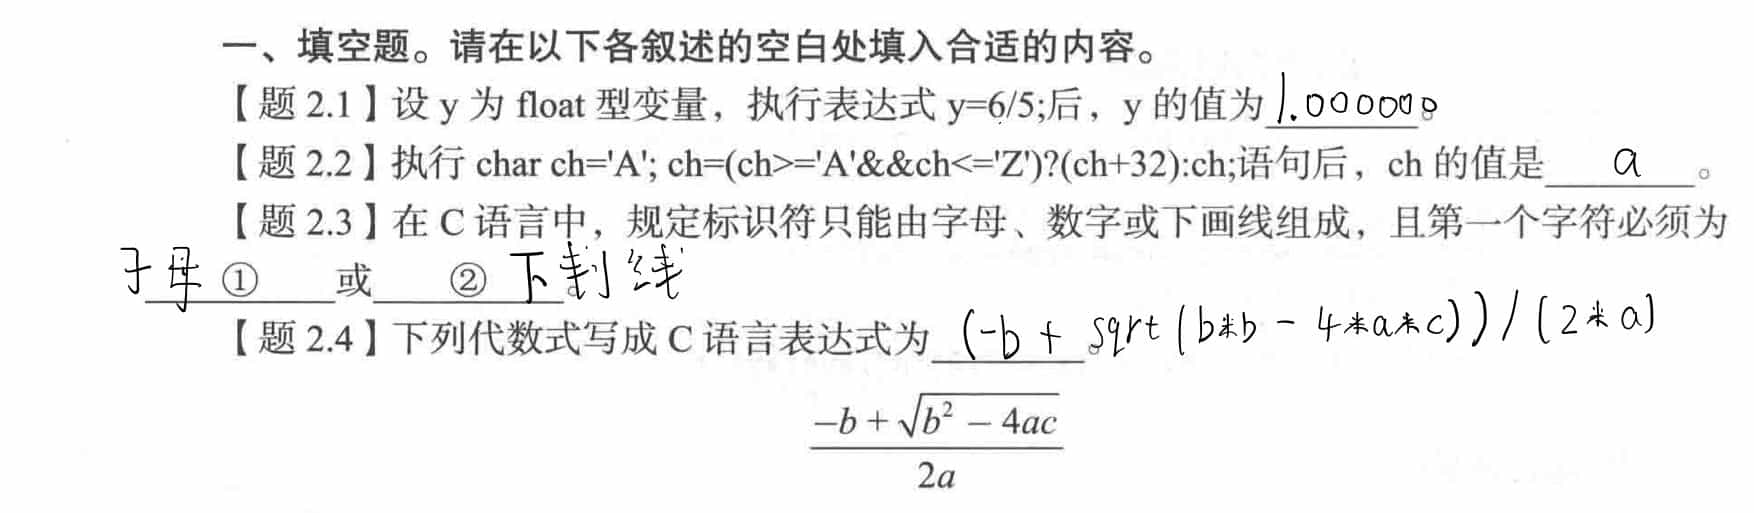 一、填空题。请在以下各叙述的空白处填入合适的内容。
【题 2.1】设 y 为 float 型变量，执行表达式 y=6/5;后，y 的值为 1.000000。
【题 2.2】执行 char ch='A'; ch=(ch>='A'&&ch<='Z')?(ch+32):ch;语句后，ch 的值是 a 。
【题 2.3】在 C 语言中，规定标识符只能由字母、数字或下画线组成，且第一个字符必须为
字母 ① 或 ② 下划线。
【题 2.4】下列代数式写成 C 语言表达式为 (-b + sqrt(b*b - 4*a*c))/(2*a)。
(-b + √(b² - 4ac)) / 2a